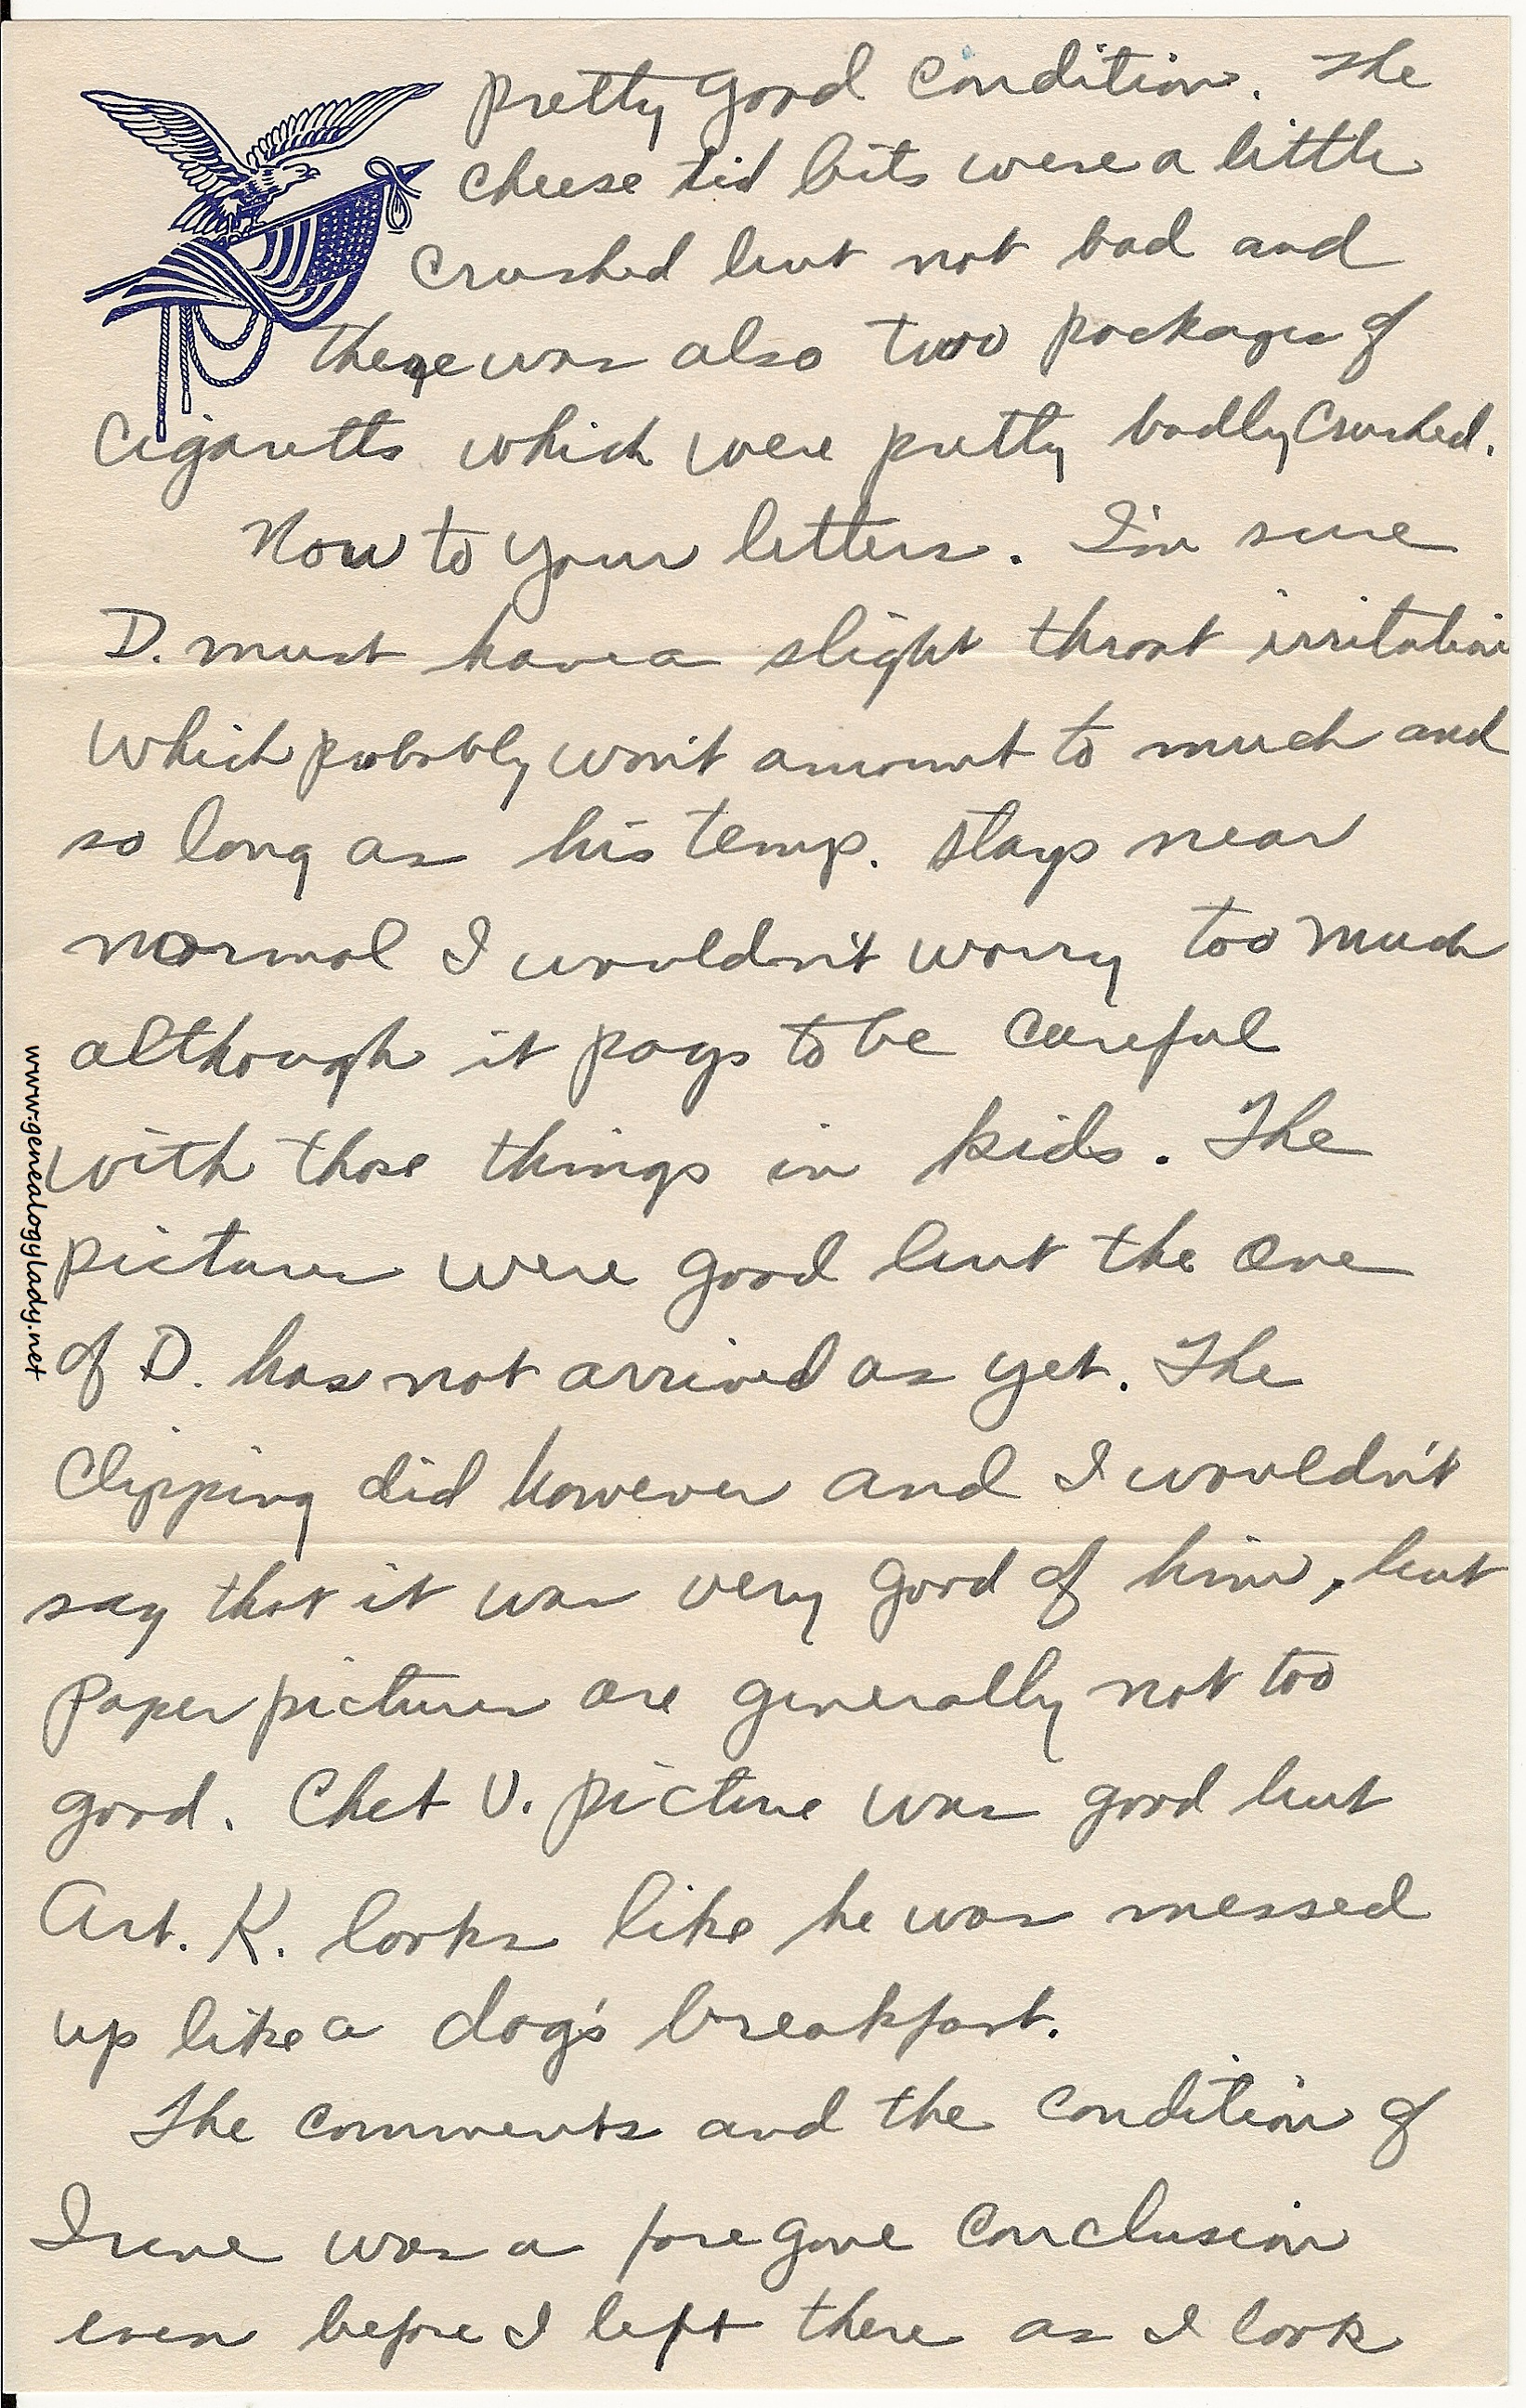 pretty good condition. The
cheese tid bits were a little
crushed but not bad and
there was also two packages of
Cigaretts which were pretty badly crushed.
Now to your letters. I'm sure
D. must have a slight throat irritation
which probably won't amount to much and
so long as his temp. stays near
normal I wouldn't worry too much
although it pays to be careful
with those things in kids. The
pictures were good but the one
of D. has not arrived as yet. The
Clipping did however and I wouldn't
say that it was very good of him, but
paper pictures are generally not too
good. Chet V. picture was good but
Art. K. looks like he was messed
up like a dog's breakfast.
The comments and the condition of
Irene was a fore gone conclusion
even before I left there as I look
www.genealogylady.net